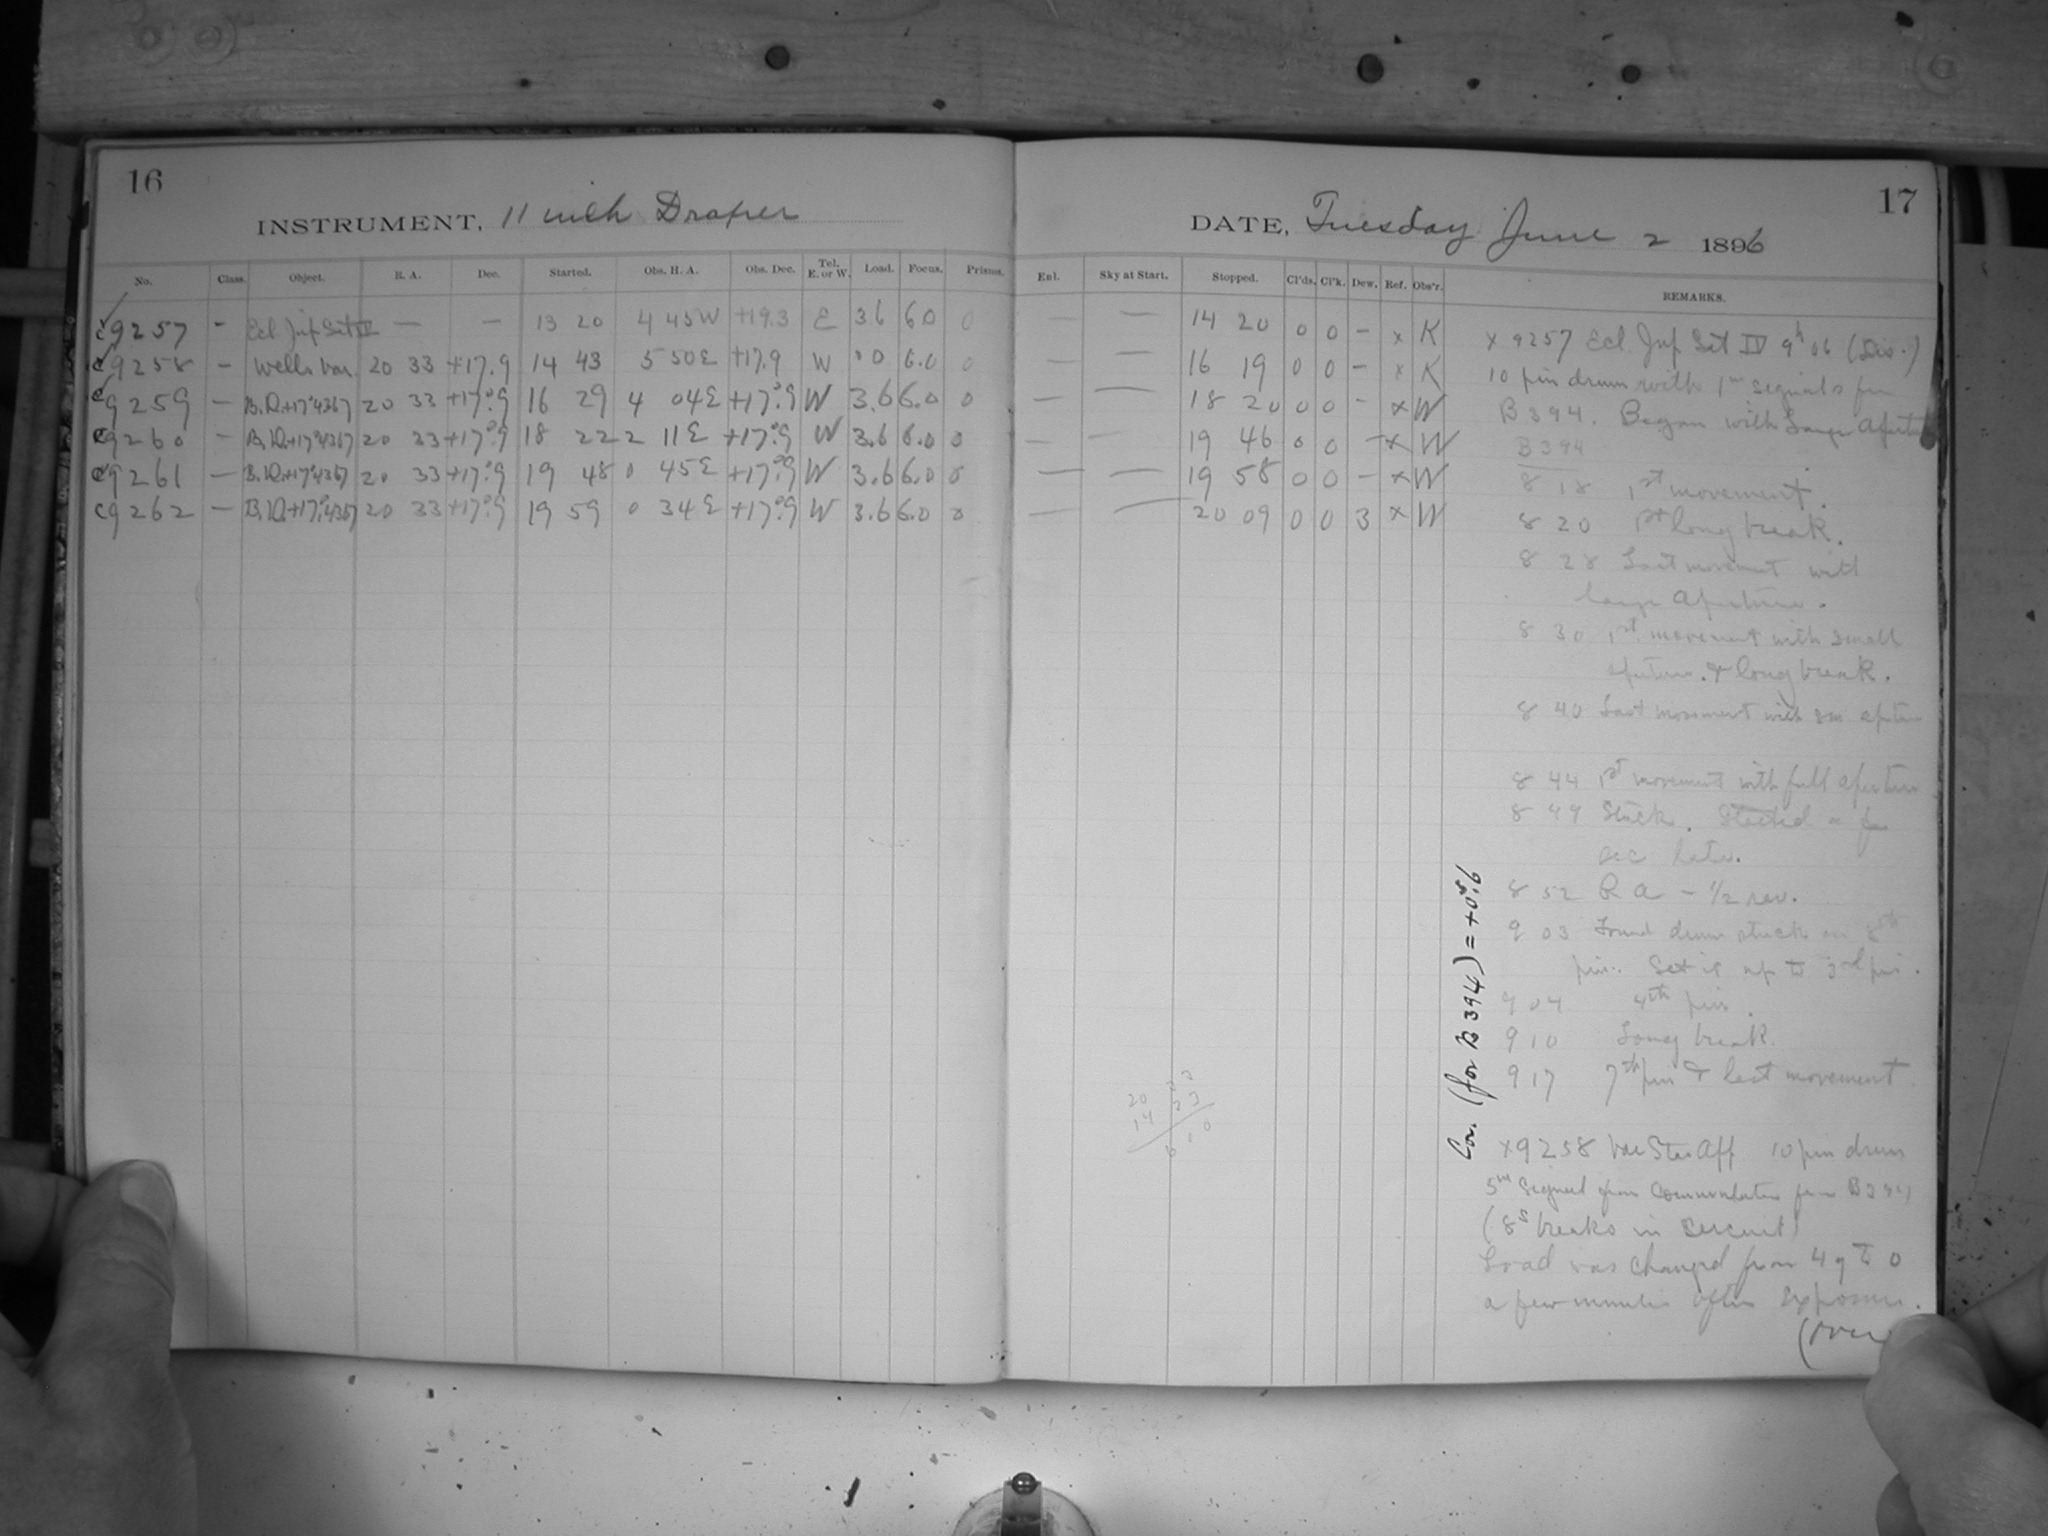 16
INSTRUMENT, 11 inch Draper
No. Class. Object. R. A. Dec. Started. Obs. H. A. Obs. Dec. Tel. E. or W. Load. Focus. Prisms.
c9257 - Ecl Jup Sat IV — — 13 20 4 45W +19.3 E 3.6 6.0 0
c9258 - Wells Var. 20 33 +17.9 14 43 5 50E +17.9 W 0 6.0 0
c9259 — B.D.+17°4367 20 33 +17°.9 16 29 4 04E +17°.9 W 3.6 6.0 0
c9260 - B.D.+17°4367 20 33 +17°.9 18 22 2 11E +17°.9 W 3.6 6.0 0
c9261 — B.D.+17°4367 20 33 +17°.9 19 48 0 45E +17°.9 W 3.6 6.0 0
c9262 — B.D.+17°4367 20 33 +17°.9 19 59 0 34E +17°.9 W 3.6 6.0 0
17
DATE, Tuesday June 2 1896
Enl. Sky at Start. Stopped. Cl'ds. Cl'k. Dew. Ref. Obs'r. REMARKS.
— — 14 20 0 0 - x K
— — 16 19 0 0 - x K
— — 18 20 0 0 - x W
— — 19 46 0 0 - x W
— — 19 58 0 0 - x W
— — 20 09 0 0 3 x W
x 9257 Ecl. Jup Sat IV 9h 06 (Dis.)
10 pin drum with 1m signals from
B394. Began with Large Aperture
B394
8 18 1st movement.
8 20 1st long break.
8 28 Last movement with
large Aperture.
8 30 1st movement with small
aperture & long break.
8 40 Last movement with sm aperture
8 44 1st movement with full aperture
8 49 Stuck. Started a few
sec later.
8 52 R A - 1/2 rev.
9 03 Found drum stuck on
pin. Set it up to 3rd pin.
9 04 4th pin.
9 10 Long break.
9 17 7th pin & last movement
Cor. (for B 394) = +0s.6
20 33
14 23
6 10
x9258 Var Star Aff 10 pin drum
5m Signal from Commutator from B394
(8s breaks in circuit)
Load was changed from 4.9 to 0
a few minutes after exposure.
(over